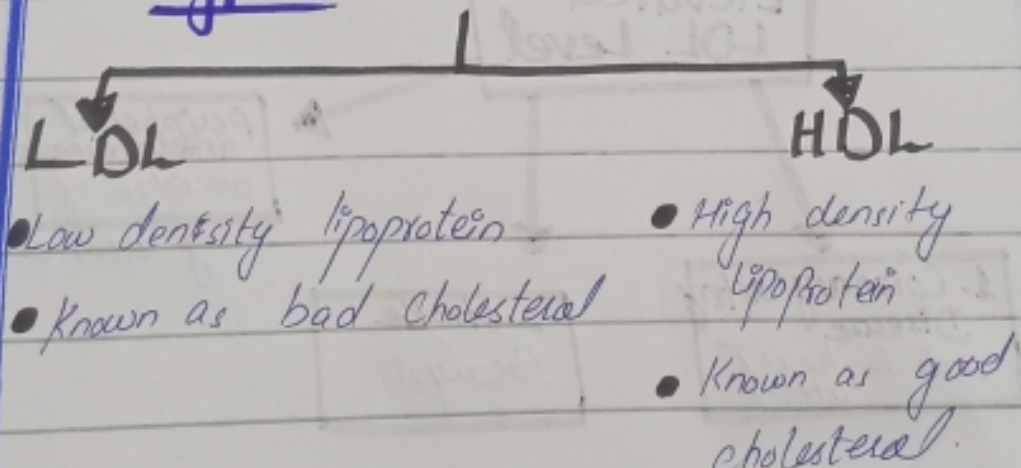 LDL
HDL
• Low dentsity lipoprotein
• Known as bad cholesteral
• High density
lipoprotein
• Known as good
cholesteral.